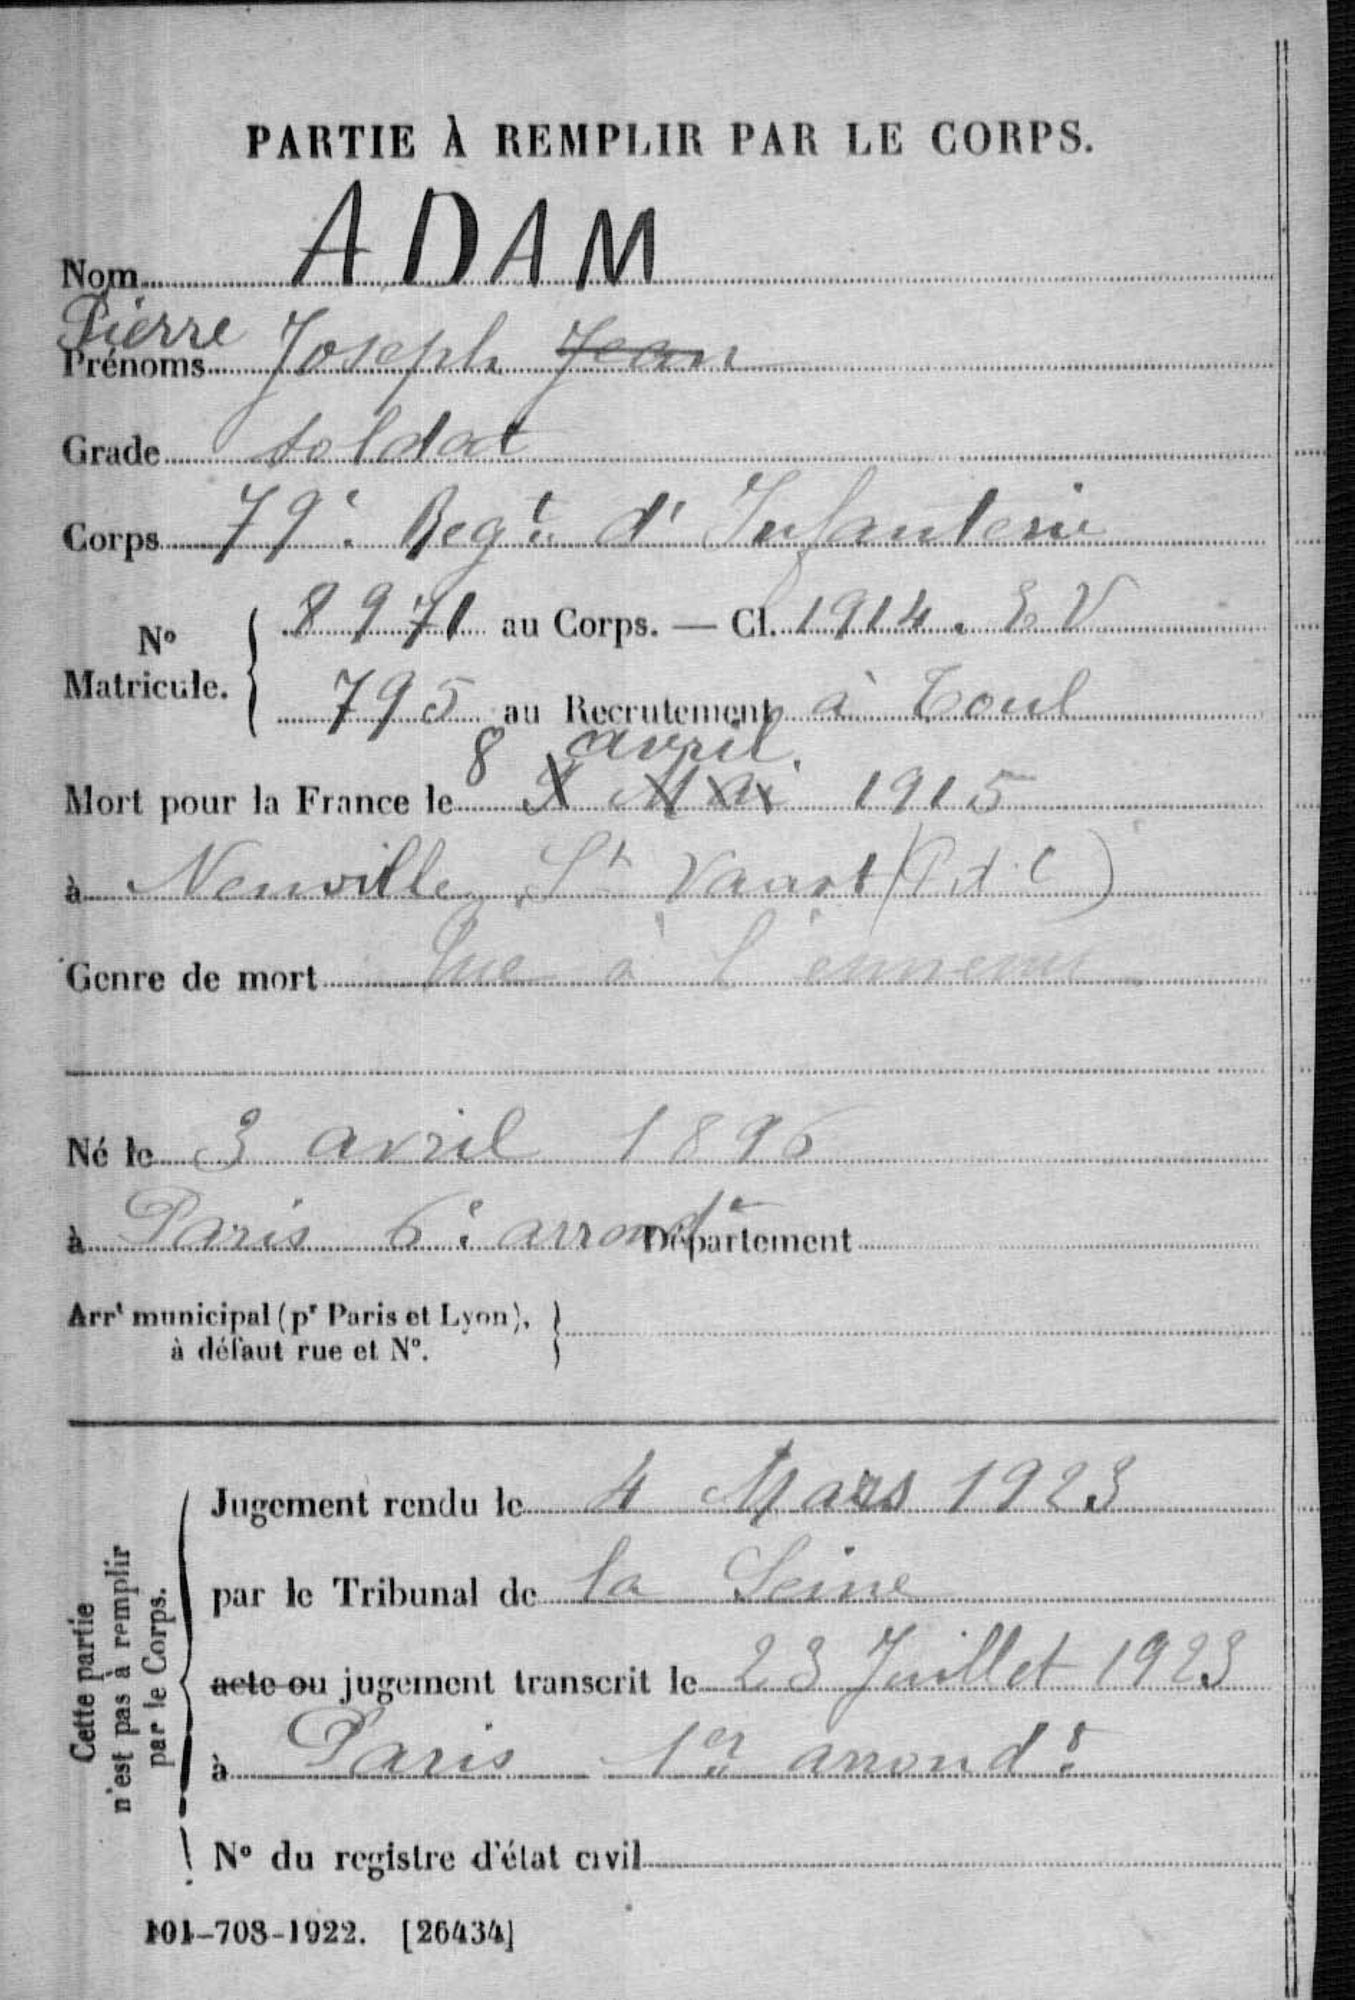 PARTIE À REMPLIR PAR LE CORPS.
Nom ADAM
Pierre
Prénoms Joseph Jean
Grade soldat
Corps 79e Regt d'Infanterie
N° Matricule. { 8971 au Corps. — Cl. 1914. E V
795 au Recrutement à Toul
8 avril.
Mort pour la France le 9 Mai 1915
à Neuville St Vaast (P.d.C)
Genre de mort Tué à l'ennemi
Né le 3 avril 1896
à Paris 6e arrondt Département
Arrt municipal (pr Paris et Lyon), }
à défaut rue et N°.
Cette partie
n'est pas à remplir
par le Corps.
Jugement rendu le 4 Mars 1923
par le Tribunal de la Seine
acte ou jugement transcrit le 23 Juillet 1923
à Paris 1er arrondt
N° du registre d'état civil
101-708-1922. [26434]